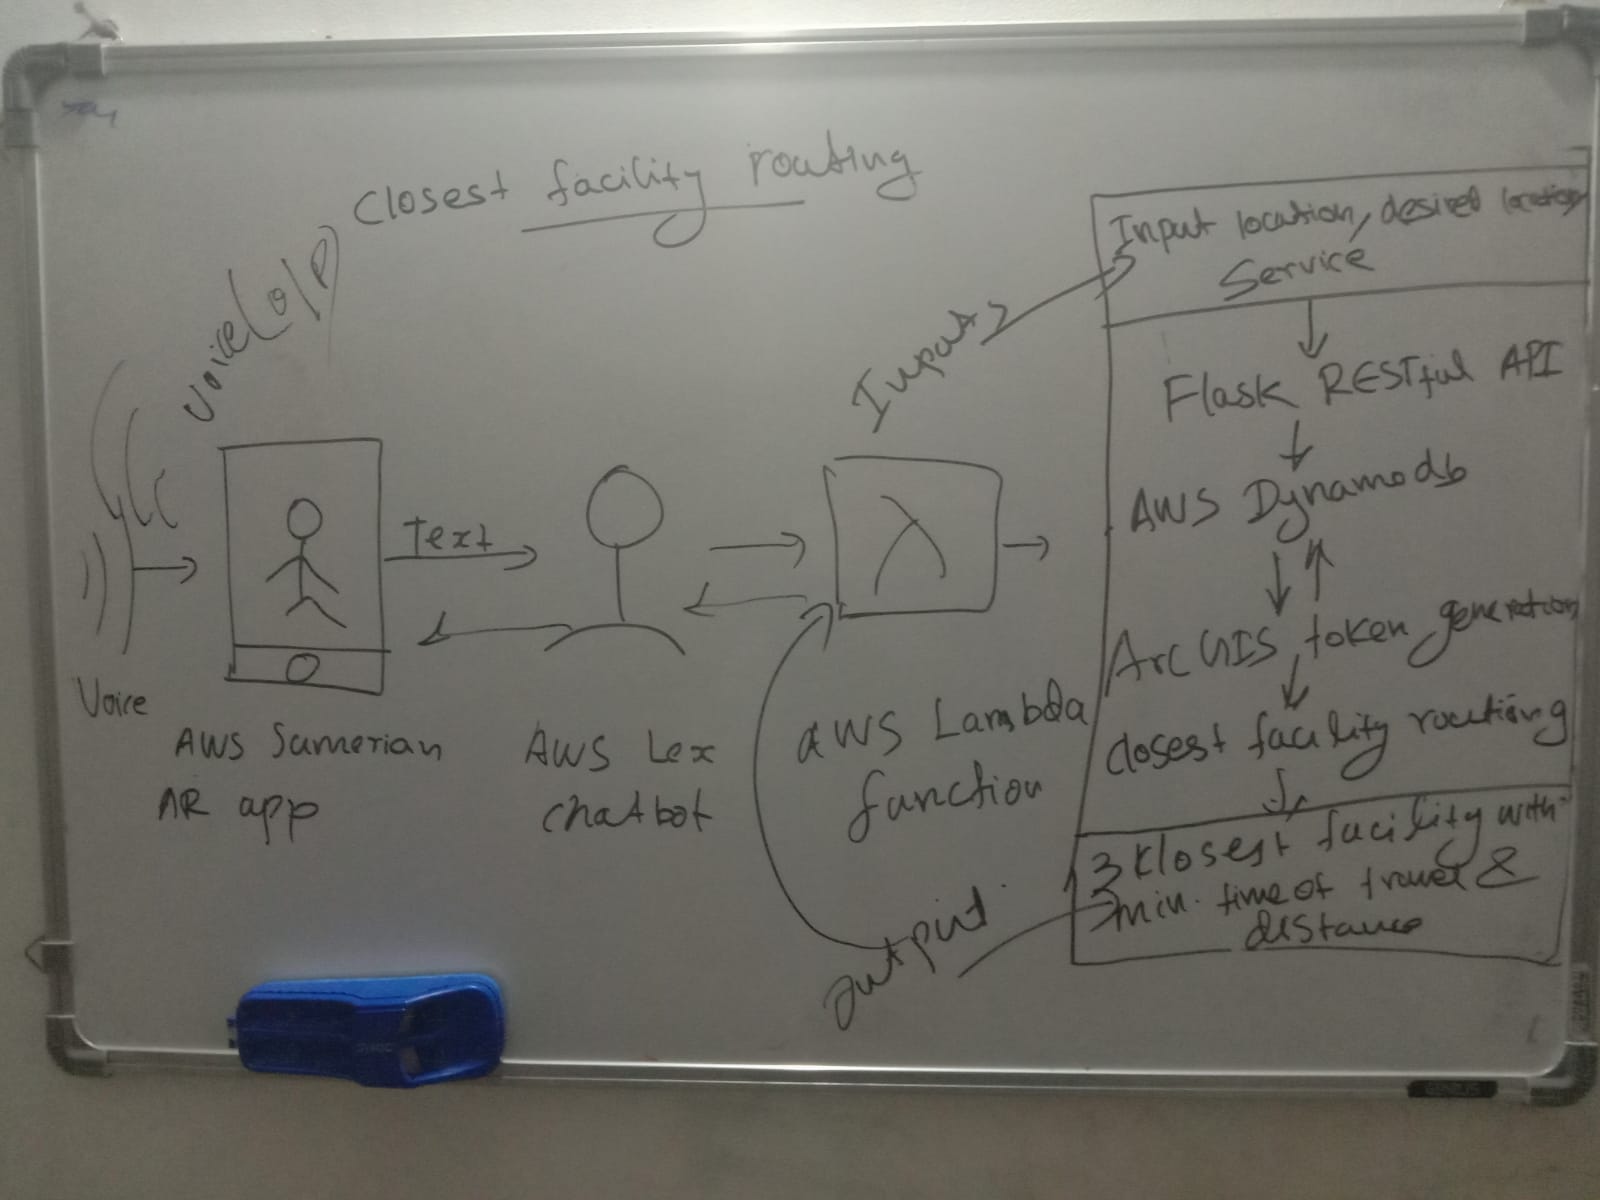 Closest facility routing
Voice(O/P)
Voice
AWS Sumerian
AR app
Text
AWS Lex
chatbot
AWS Lambda
function
Inputs
Input location, desired location
Service
Flask RESTful API
AWS Dynamodb
ArcGIS token generation
closest facility routing
3 closest facility with
min. time of travel &
distance
output